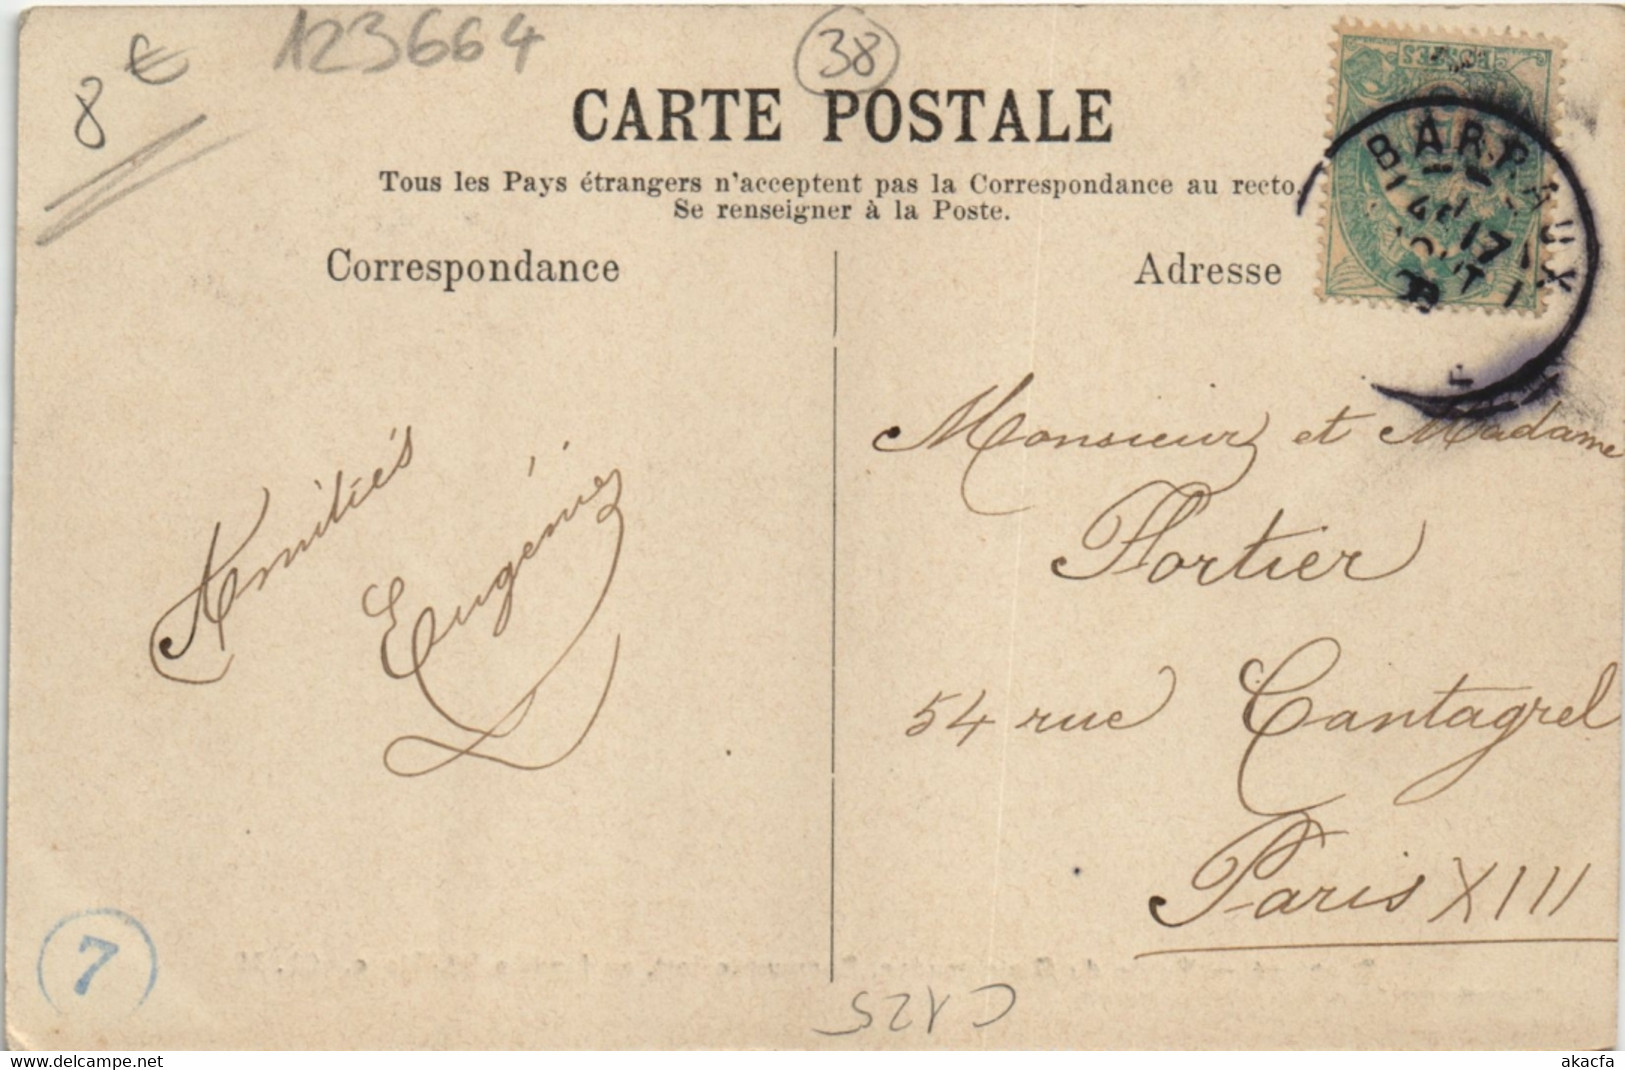 8 €
123664
38
CARTE POSTALE
Tous les Pays étrangers n'acceptent pas la Correspondance au recto.
Se renseigner à la Poste.
Correspondance
Adresse
BARRAUX
17
Amitiés
Eugénie
Monsieur et Madame
Hortier
54 rue Cantagrel
Paris XIII
7
C125
delcampe.net
akacfa